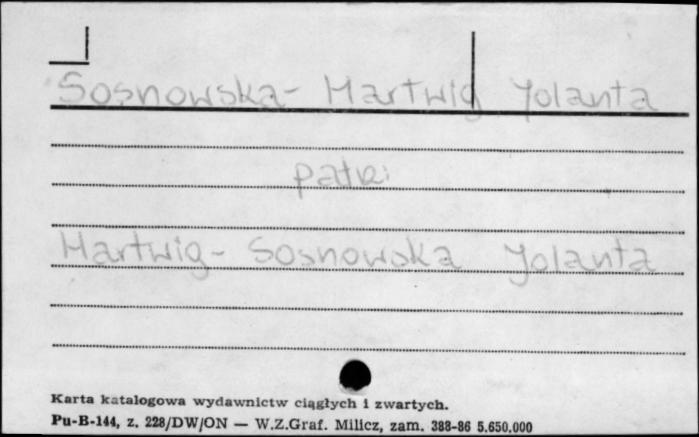 Sosnowska-Hartwig Jolanta
patrz
Hartwig-Sosnowska Jolanta
Karta katalogowa wydawnictw ciągłych i zwartych.
Pu-B-144, z. 228/DW/ON — W.Z.Graf. Milicz, zam. 388-86 5.650.000